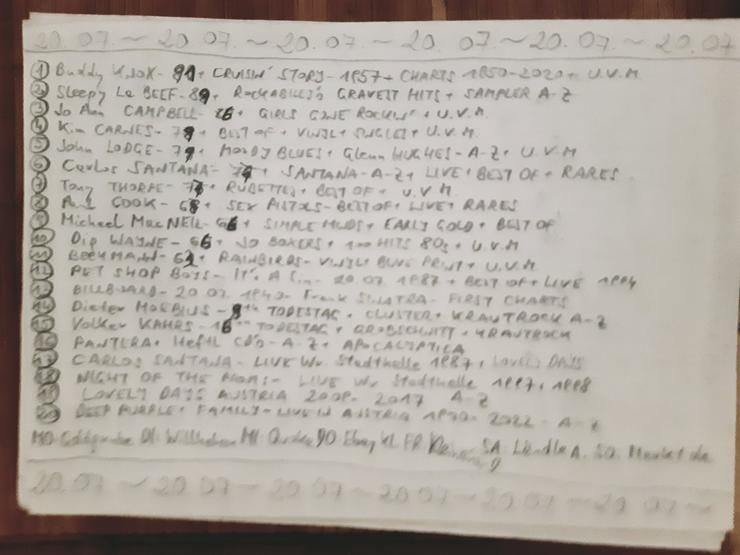 20.07. ~ 20.07. ~ 20.07. ~ 20.07. ~ 20.07. ~ 20.07
① Buddy KNOX - + CRUISIN' STORY - 1957 + CHARTS 1950-2020 + U.V.M
② Sleepy La BEEF - 89 + ROCKABILLY'S GRAVEST HITS + SAMPLER A-Z
③ Jo Ann CAMPBELL - 86 + GIRLS GONE ROCKIN' + U.V.M.
④ Kim CARNES - 79 + BEST OF + VINYL + SINGLES + U.V.M.
⑤ John LODGE - 79 + MOODY BLUES + Glenn HUGHES - A-Z + U.V.M
⑥ Carlos SANTANA - + SANTANA - A-Z + LIVE + BEST OF + RARES
⑦ Tony THORPE - + RUBETTES + BEST OF + U.V.M.
⑧ Paul COOK - 68 + SEX PISTOLS - BEST OF + LIVE + RARES
⑨ Michael MacNEIL - 66 + SIMPLE MINDS + EARLY GOLD + BEST OF
⑩ Dig WAYNE - 66 + JO BOXERS + 100 HITS 80s + U.V.M
⑪ BECKMANN - + RAINBIRDS - VINYL BLUE PRINT + U.V.M.
⑫ PET SHOP BOYS - It's A Sin - 20.07. 1987 + BEST OF + LIVE 1994
⑬ BILLBOARD - 20.07. 1940 - Frank SINATRA - FIRST CHARTS
⑭ Dieter MOEBIUS - TODESTAG + CLUSTER + KRAUTROCK A-Z
⑮ Volker KAHRS - TODESTAG + GROBSCHNITT + KRAUTROCK
⑯ PANTERA + Heftl CD's - A-Z + APOCALYPTICA
⑰ CARLOS SANTANA - LIVE Wr. Stadthalle 1987 + LOVELY DAYS
⑱ NIGHT OF THE PROMS - LIVE Wr. Stadthalle 1997 + 1998
⑲ LOVELY DAYS AUSTRIA 2008 - 2017 A-Z
⑳ DEEP PURPLE + FAMILY - LIVE IN AUSTRIA 1970 - 2022 - A-Z
MO. Goldgrube DI. Willhaben MI. DO Ebay FR SA. Ländle A. SO.
20.07 ~ 20.07 ~ 20.07 ~ 20.07 ~ 20.07 ~ 20.07 ~